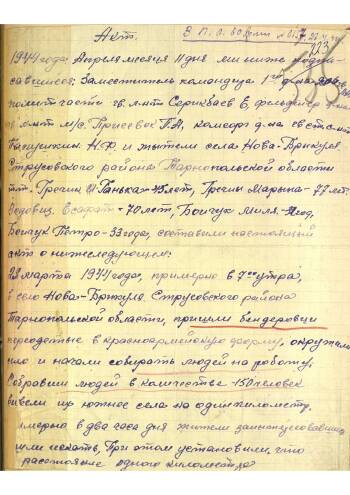 Акт.
1944 года, Апреля месяца 11 дня мы ниже подпи-
савшиеся: Заместитель командира 1го д-на по
полит части гв. л-нт Серикбаев Е, фельдшер
гв. л-нт м/с. Присевок П.А, комсорг д-на гв ст с-нт
Кагушкин Н.Ф. и жители села Нова-Брикуля
Струсовского района Тарнопольской области
гр. Грегин Ганька-45 лет, Грегин Марина-77 лет.
Федовиц. Есафат-70 лет, Бойчук Миля- год,
Бойчук Петро-33 года, составили настоящий
акт о нижеследующем:
23 марта 1944 года, примерно в 7 00 утра,
в село Нова-Брикуля Струсовского района
Тарнопольской области, пришли бендеровци
переодетые в красноармейскую форму, окружили
село и начали собирать людей на работу,
Собравши людей в количестве -150 человек
вывели их южнее села на один километр,
примерно в два часа дня жители заинтересовавшись
пошли искать, При этом установили, что
расстояние одного километра